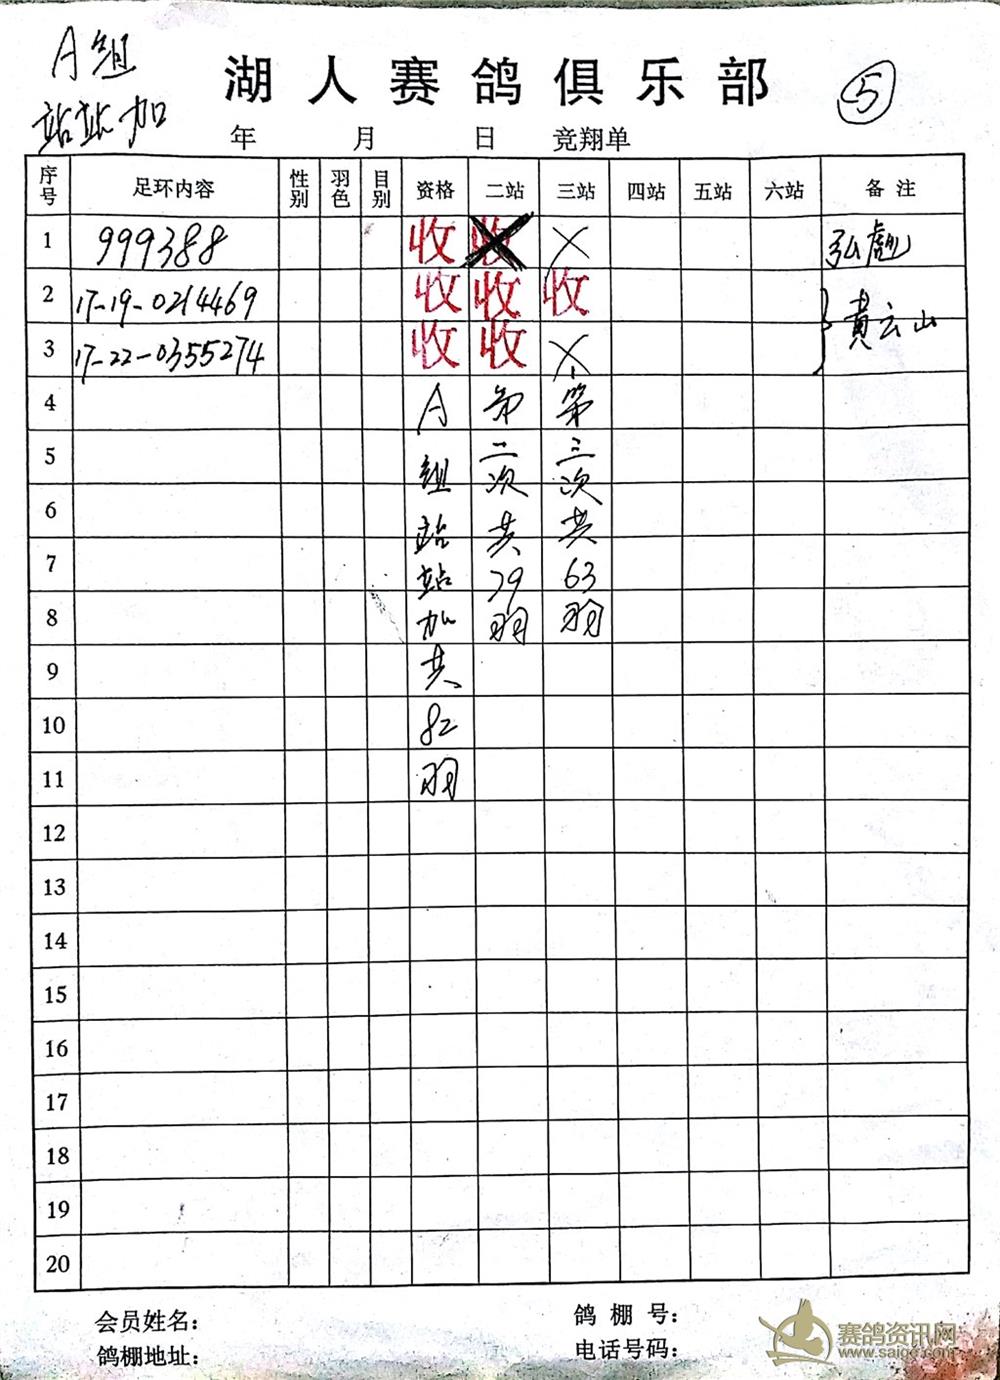 A组
站站加
湖人赛鸽俱乐部
⑤
年 月 日 竞翔单
序号 足环内容 性别 羽色 目别 资格 二站 三站 四站 五站 六站 备注
1 999388 收 收 X 弘彪
2 17-19-0214469 收 收 收 黄云山
3 17-22-0355274 收 收 X
4 A 第 第
5 组 二 三
6 站 次 次
7 站 共 共
8 加 79 63
9 共 羽 羽
10 82
11 羽
12
13
14
15
16
17
18
19
20
会员姓名： 鸽棚号：
鸽棚地址： 电话号码：
赛鸽资讯网
www.saige.com